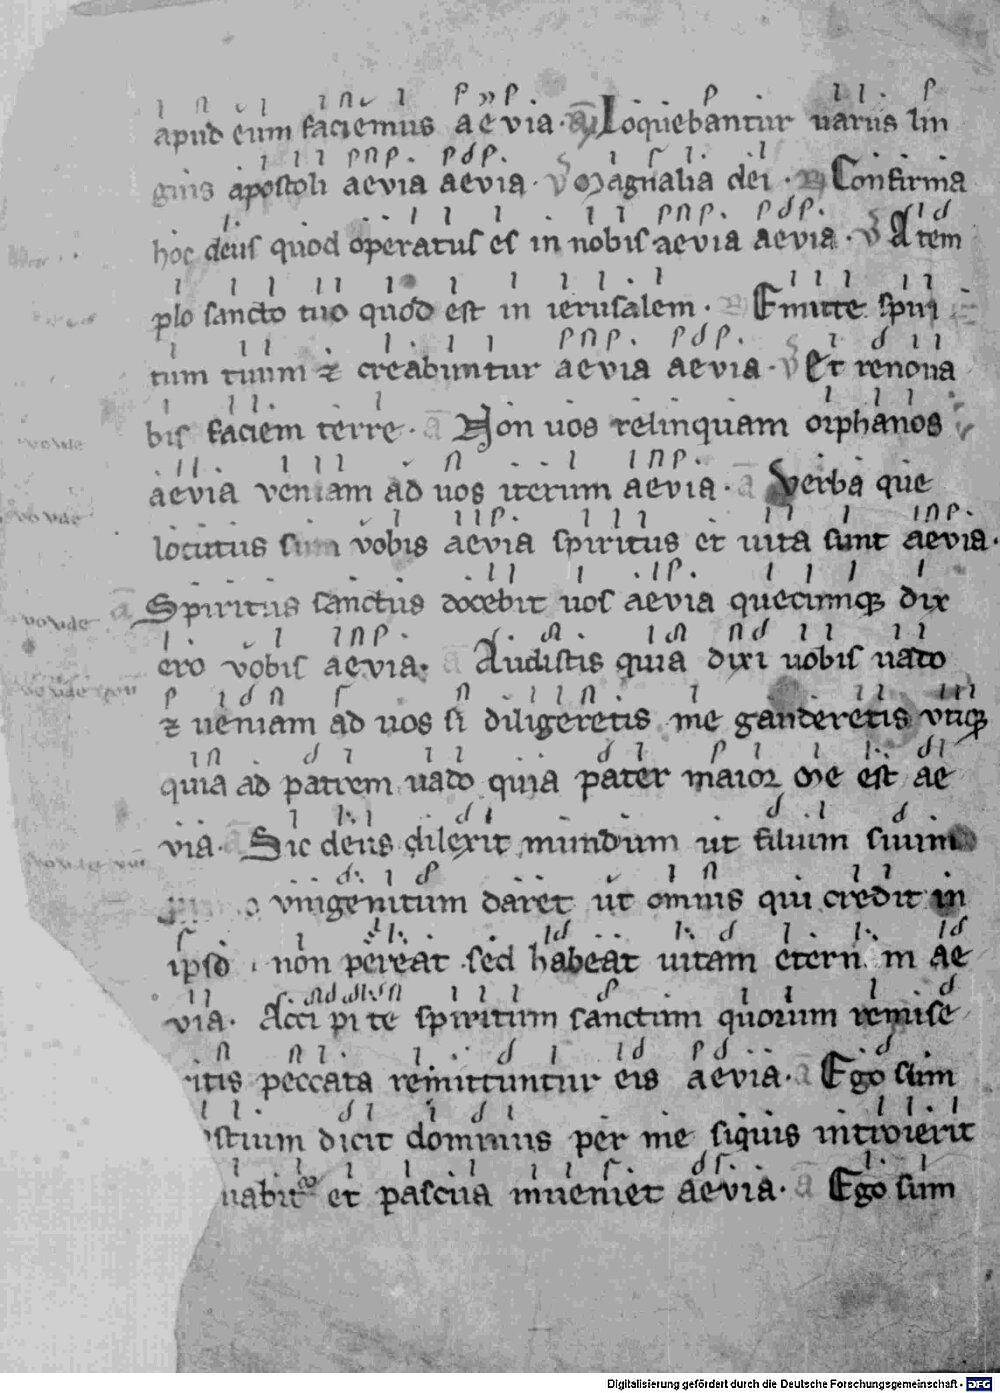 apud eum faciemus aevia. a Loquebantur uariis lin
guis apostoli aevia aevia. v Magnalia dei. R Confirma
hoc deus quod operatus es in nobis aevia aevia. v A tem
plo sancto tuo quod est in ierusalem. Emitte spiri
tum tuum ⁊ creabuntur aevia aevia. v Et renoua
bis faciem terre. a Non uos relinquam orphanos
aevia veniam ad uos iterum aevia. a Verba que
locutus sum vobis aevia spiritus et uita sunt aevia.
a Spiritus sanctus docebit uos aevia quecumqꝫ dix
ero vobis aevia. a Audistis quia dixi uobis uado
⁊ ueniam ad uos si diligeretis me gauderetis vtiqꝫ
quia ad patrem uado quia pater maior me est ae
via. a Sic deus dilexit mundum ut filium suum
vnigenitum daret ut omnis qui credit in
ipso non pereat sed habeat uitam etern m ae
via. Accipite spiritum sanctum quorum remise
ritis peccata remittuntur eis aevia. a Ego sum
stium dicit dominus per me siquis introierit
uabit et pascua inueniet aevia. a Ego sum
Digitalisierung gefördert durch die Deutsche Forschungsgemeinschaft - DFG